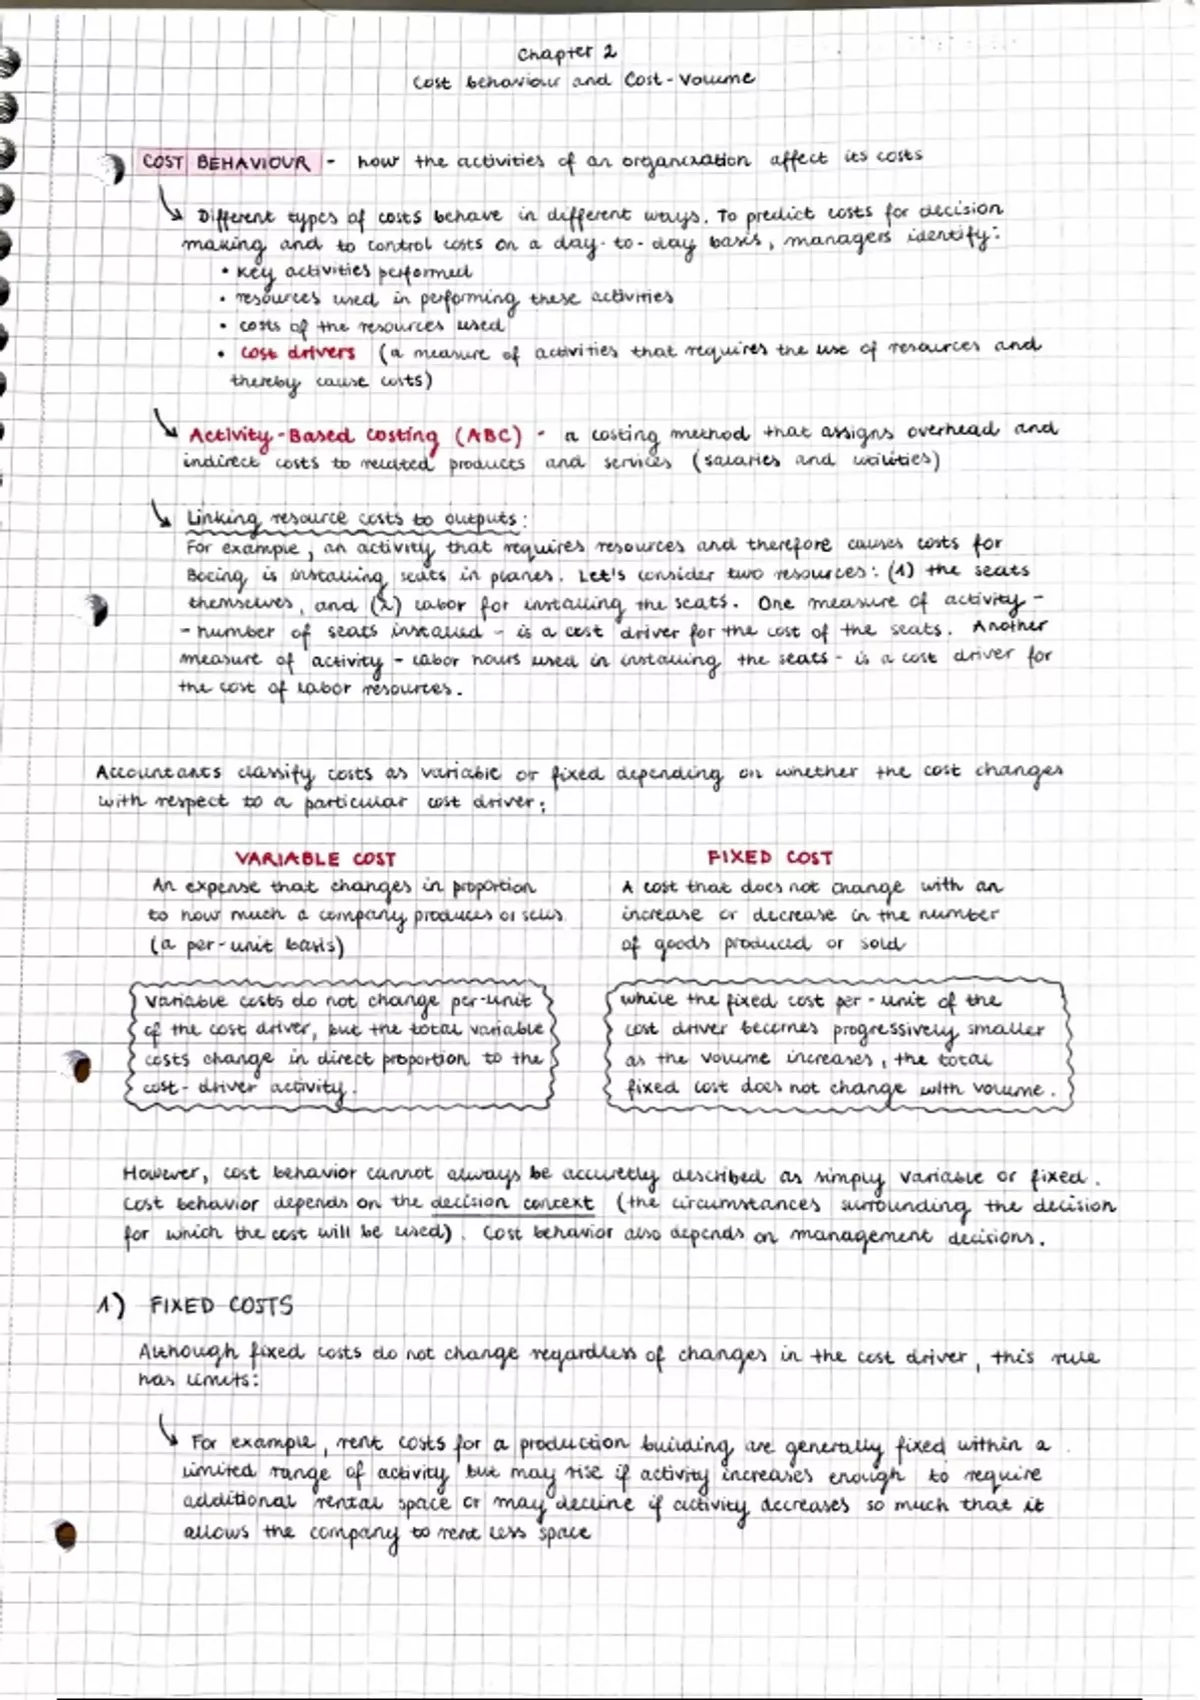 Chapter 2
Cost behaviour and Cost-Volume
COST BEHAVIOUR - how the activities of an organization affect its costs
Different types of costs behave in different ways. To predict costs for decision
making and to control costs on a day-to-day basis, managers identify:
• key activities performed
• resources used in performing these activities
• costs of the resources used
• cost drivers (a measure of activities that requires the use of resources and
thereby cause costs)
Activity-Based Costing (ABC) - a costing method that assigns overhead and
indirect costs to related products and services (salaries and utilities)
Linking resource costs to outputs:
For example, an activity that requires resources and therefore causes costs for
Boeing is installing seats in planes. Let's consider two resources: (1) the seats
themselves, and (2) labor for installing the seats. One measure of activity -
- number of seats installed - is a cost driver for the cost of the seats. Another
measure of activity - labor hours used in installing the seats - is a cost driver for
the cost of labor resources.
Accountants classify costs as variable or fixed depending on whether the cost changes
with respect to a particular cost driver;
VARIABLE COST
An expense that changes in proportion
to how much a company produces or sells
(a per-unit basis)
Variable costs do not change per-unit
of the cost driver, but the total variable
costs change in direct proportion to the
cost-driver activity.
FIXED COST
A cost that does not change with an
increase or decrease in the number
of goods produced or sold
while the fixed cost per-unit of the
cost driver becomes progressively smaller
as the volume increases, the total
fixed cost does not change with volume.
However, cost behavior cannot always be accuretly described as simply variable or fixed.
Cost behavior depends on the decision context (the circumstances surrounding the decision
for which the cost will be used). Cost behavior also depends on management decisions.
1) FIXED COSTS
Although fixed costs do not change regardless of changes in the cost driver, this rule
has limits:
For example, rent costs for a production building are generally fixed within a
limited range of activity but may rise if activity increases enough to require
additional rental space or may decline if activity decreases so much that it
allows the company to rent less space